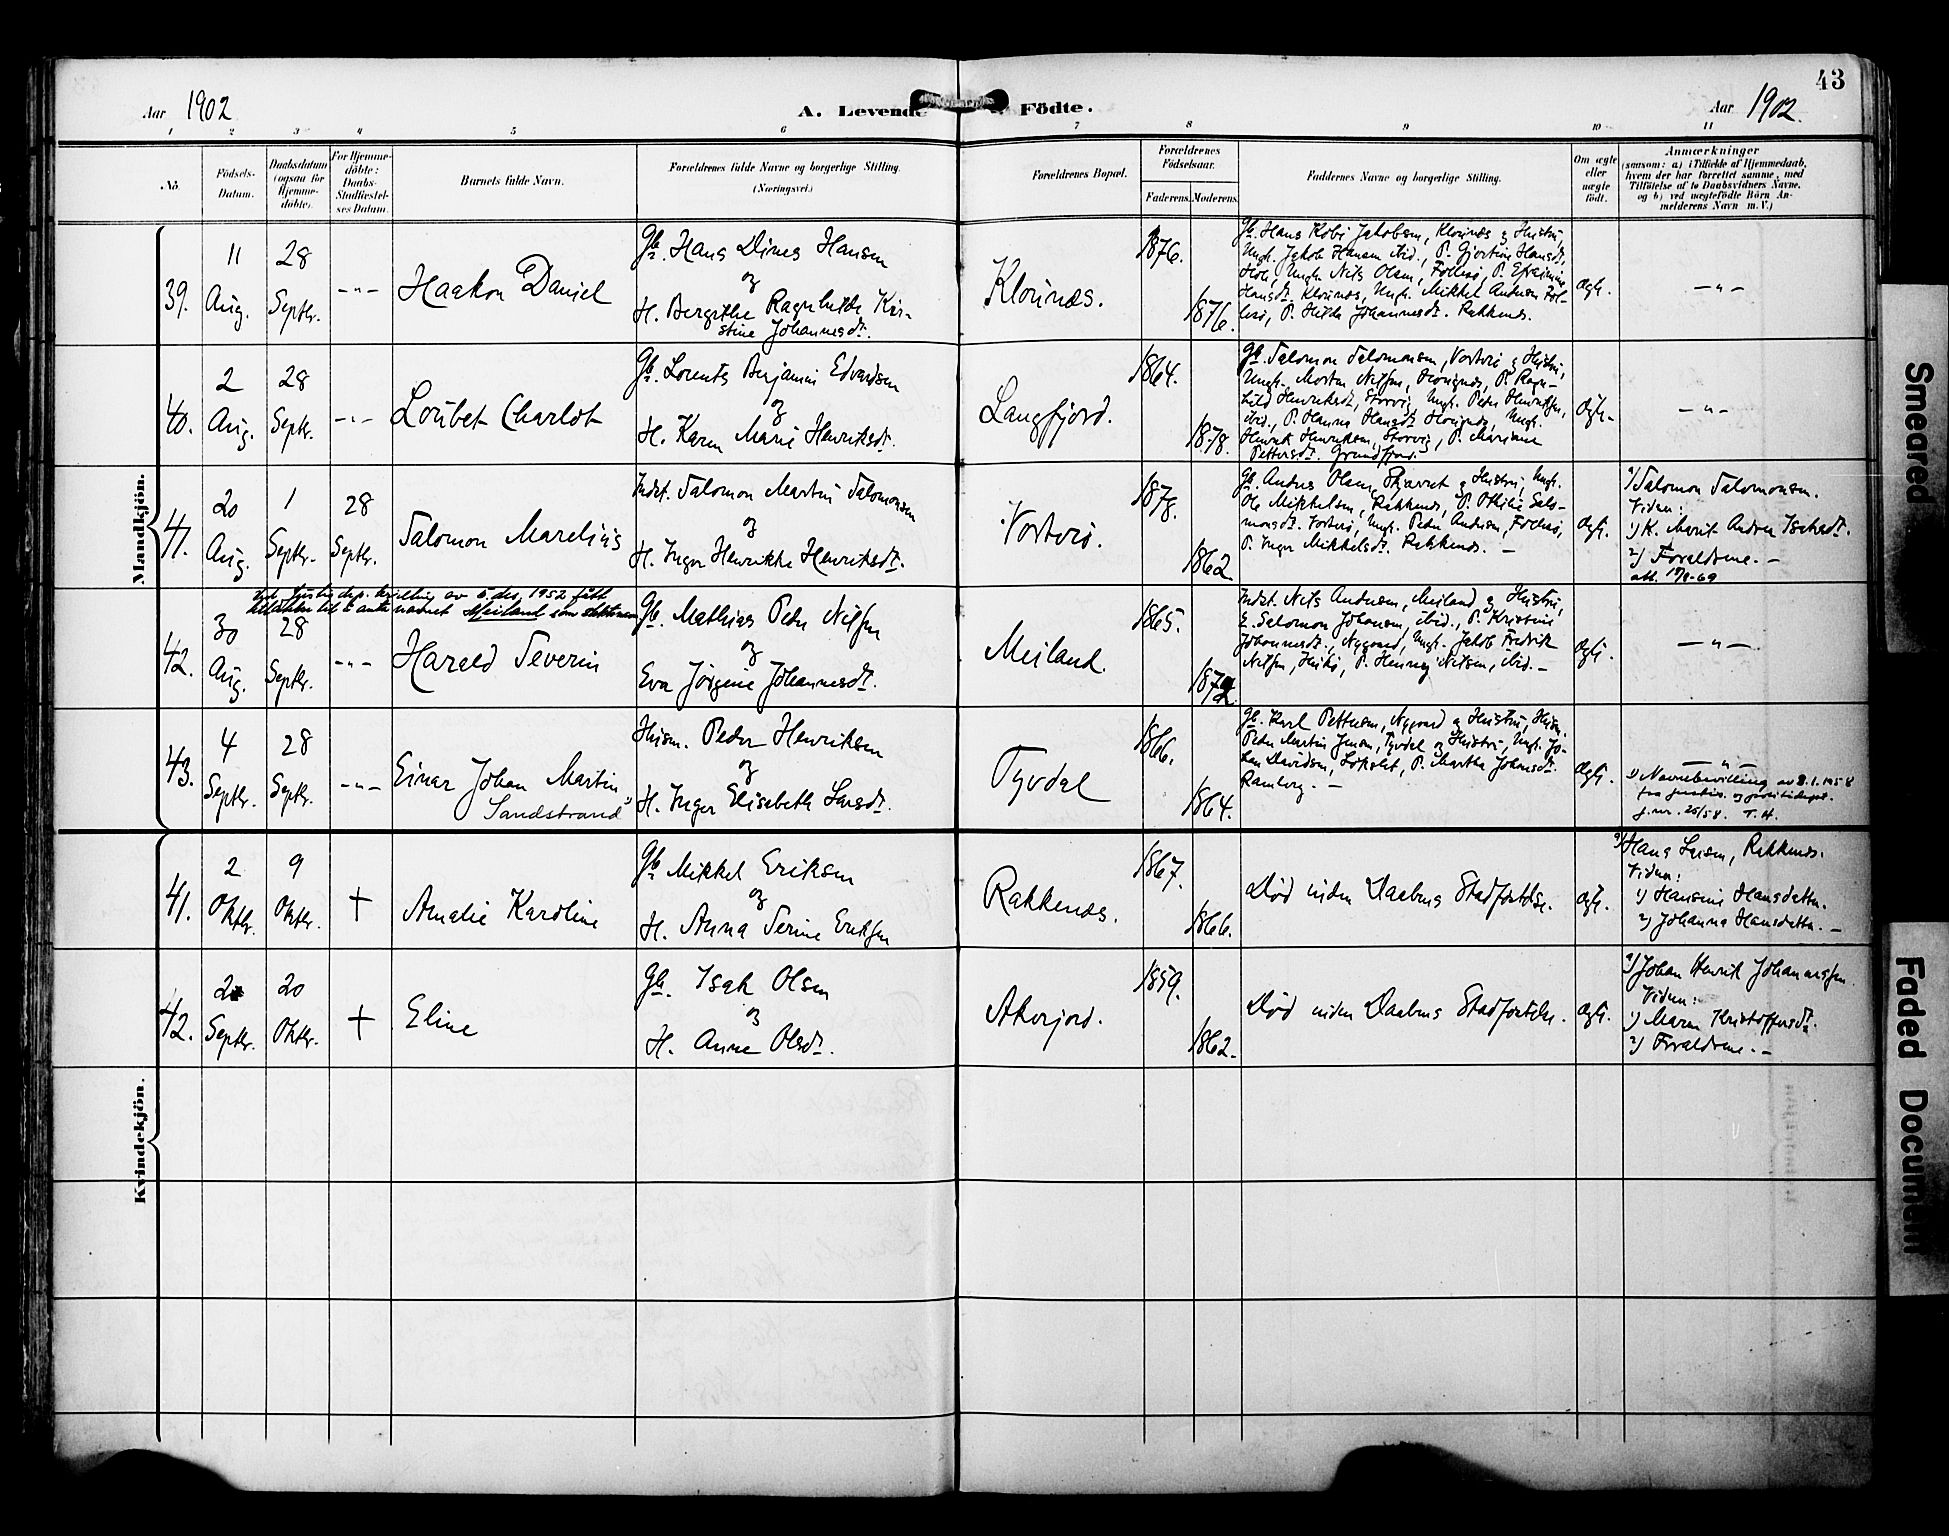 43
Aar 1902
A. Levende Födte.
Aar 1902.
1 2 3 4 5 6 7 8 9 10 11
No.
Födsels-Datum.
Daabsdatum (ogsaa för Hjemme-döbte).
For Hjemme-döbte: Daabs-Stadfæstel-ses Datum.
Barnets fulde Navn.
Forældrenes fulde Navne og borgerlige Stilling. (Næringsvei.)
Forældrenes Bopæl.
Forældrenes Födselsaar.
Faderens. Moderens.
Faddernes Navne og borgerlige Stilling.
Om ægte eller uægte födt.
Anmærkninger
(saasom: a) i Tilfælde af Hjemmedaab,
hvem der har forrettet samme, med
Tilföielse af to Daabsvidners Navne,
og b) ved uægtefödte Börn An-
melderens Navn m. V.)
Mandkjön.
39.
11 Aug.
28 Septbr.
-"-
Haakon Daniel
Gb. Hans Dines Hansen
og
H. Bergithe Ragnhilda Kir-
stine Johannesdt.
Klovnæs.
1876.
1876.
Gb. Hans Kobi Jakobsen, Klovnæs og Hustru,
Ungk. Jakob Hansen ibid., P.
Ungk. Nils Olsen,
Hansdt. Klovnæs, Ungk. Mikkel Andersen
P. Hilda Johannesdt. Rakkenæs.
ægte.
-"-
40.
2 Aug.
28 Septbr.
-"-
Loubet Charlot
Gb. Lorents Benjamin Edvardsen
og
H. Karen Marie Henriksdt.
Langfjord.
1864.
1878.
Gb. Salomon Salomonsen, Vorterö og Hustru,
Ungk. Morten Nilsen, P. Ragn-
hild Henriksdt., Storvig, Ungk. Peder Henriksen,
ibid., P. Hanna Hansdt. Ungk.
Henrik Henriksen, Storvig, P. Mariane
Pettersdt. Grundfjord.
ægte.
-"-
41.
20 Aug.
1 Septbr.
28 Septbr.
Salomon Marelius
Indst. Salomon Martin Salomonsen
og
H. Inger Henrikke Henriksdt.
Vorterö.
1878.
1862.
Gb. Anders Olsen, Skjævnet og Hustru, Ungk.
Ole Mikkelsen, Rakkenæs, P. Othilie Salo-
monsdt. Vorterö, Ungk. Peder Andersen,
P. Inger Mikkelsdt. Rakkenæs. -
ægte.
a) Salomon Salomonsen.
Vidner:
1) K. Marit Andrea Isaksdt.
2) Forældrene. -
att. 17/9-69
Ved Justisdep. bevilling av 6. des. 1952 fått
tillatelse til å anta navnet Meiland som slektsnavn
42.
30 Aug.
28 Septbr.
-"-
Harald Severin
Gb. Mathias Peder Nilsen
og
Eva Jörgine Johannesdt.
Meiland.
1865.
1872.
Indst. Nils Andersen, Meiland og Hustru,
E. Salomon Johansen, ibid., P. Kristine
Johannesdt., Nygaard, Ungk. Jakob Fredrik
Nilsen, P. Henny Nilsen, ibid. -
ægte.
-"-
43.
4 Septbr.
28 Septbr.
-"-
Einar Johan Martin
Sandstrand
Husm. Peder Henriksen
og
H. Inger Elisabeth Larsdt.
Tyvdal
1866.
1864.
Gb. Karl Pettersen, Nygaard og Hustru, Husm.
Peder Martin Jensen, Tyvdal og Hustru, Ungk. Jo-
han Davidsen, P. Martha Johnsdt.
Ramberg. -
ægte.
-"-
1) Navnebevilling av 8.1.1958
fra justis. og politidept.
j.nr. 26/58. T.H.
Kvindekjön.
41.
2 Oktbr.
9 Oktbr.
+
Amalie Karoline
Gb. Mikkel Eriksen
og
H. Anna Serine Eriksen
Rakkenæs.
1867.
1866.
Död inden Daabens Stadfæstelse.
ægte.
a) Hans Larsen, Rakkenæs.
Vidner:
1) Hansine Hansdatter.
2) Johanna Hansdatter. -
42.
20 Septbr.
20 Oktbr.
+
Eline
Gb. Isak Olsen
og
H. Anne Olsdt.
Akerjord.
1859.
1862.
Död inden Daabens Stadfæstelse.
ægte.
a) Johan Henrik Johannessen.
Vidner:
1) Maren Kristoffersdt.
2) Forældrene. -
Smeared
Faded Document